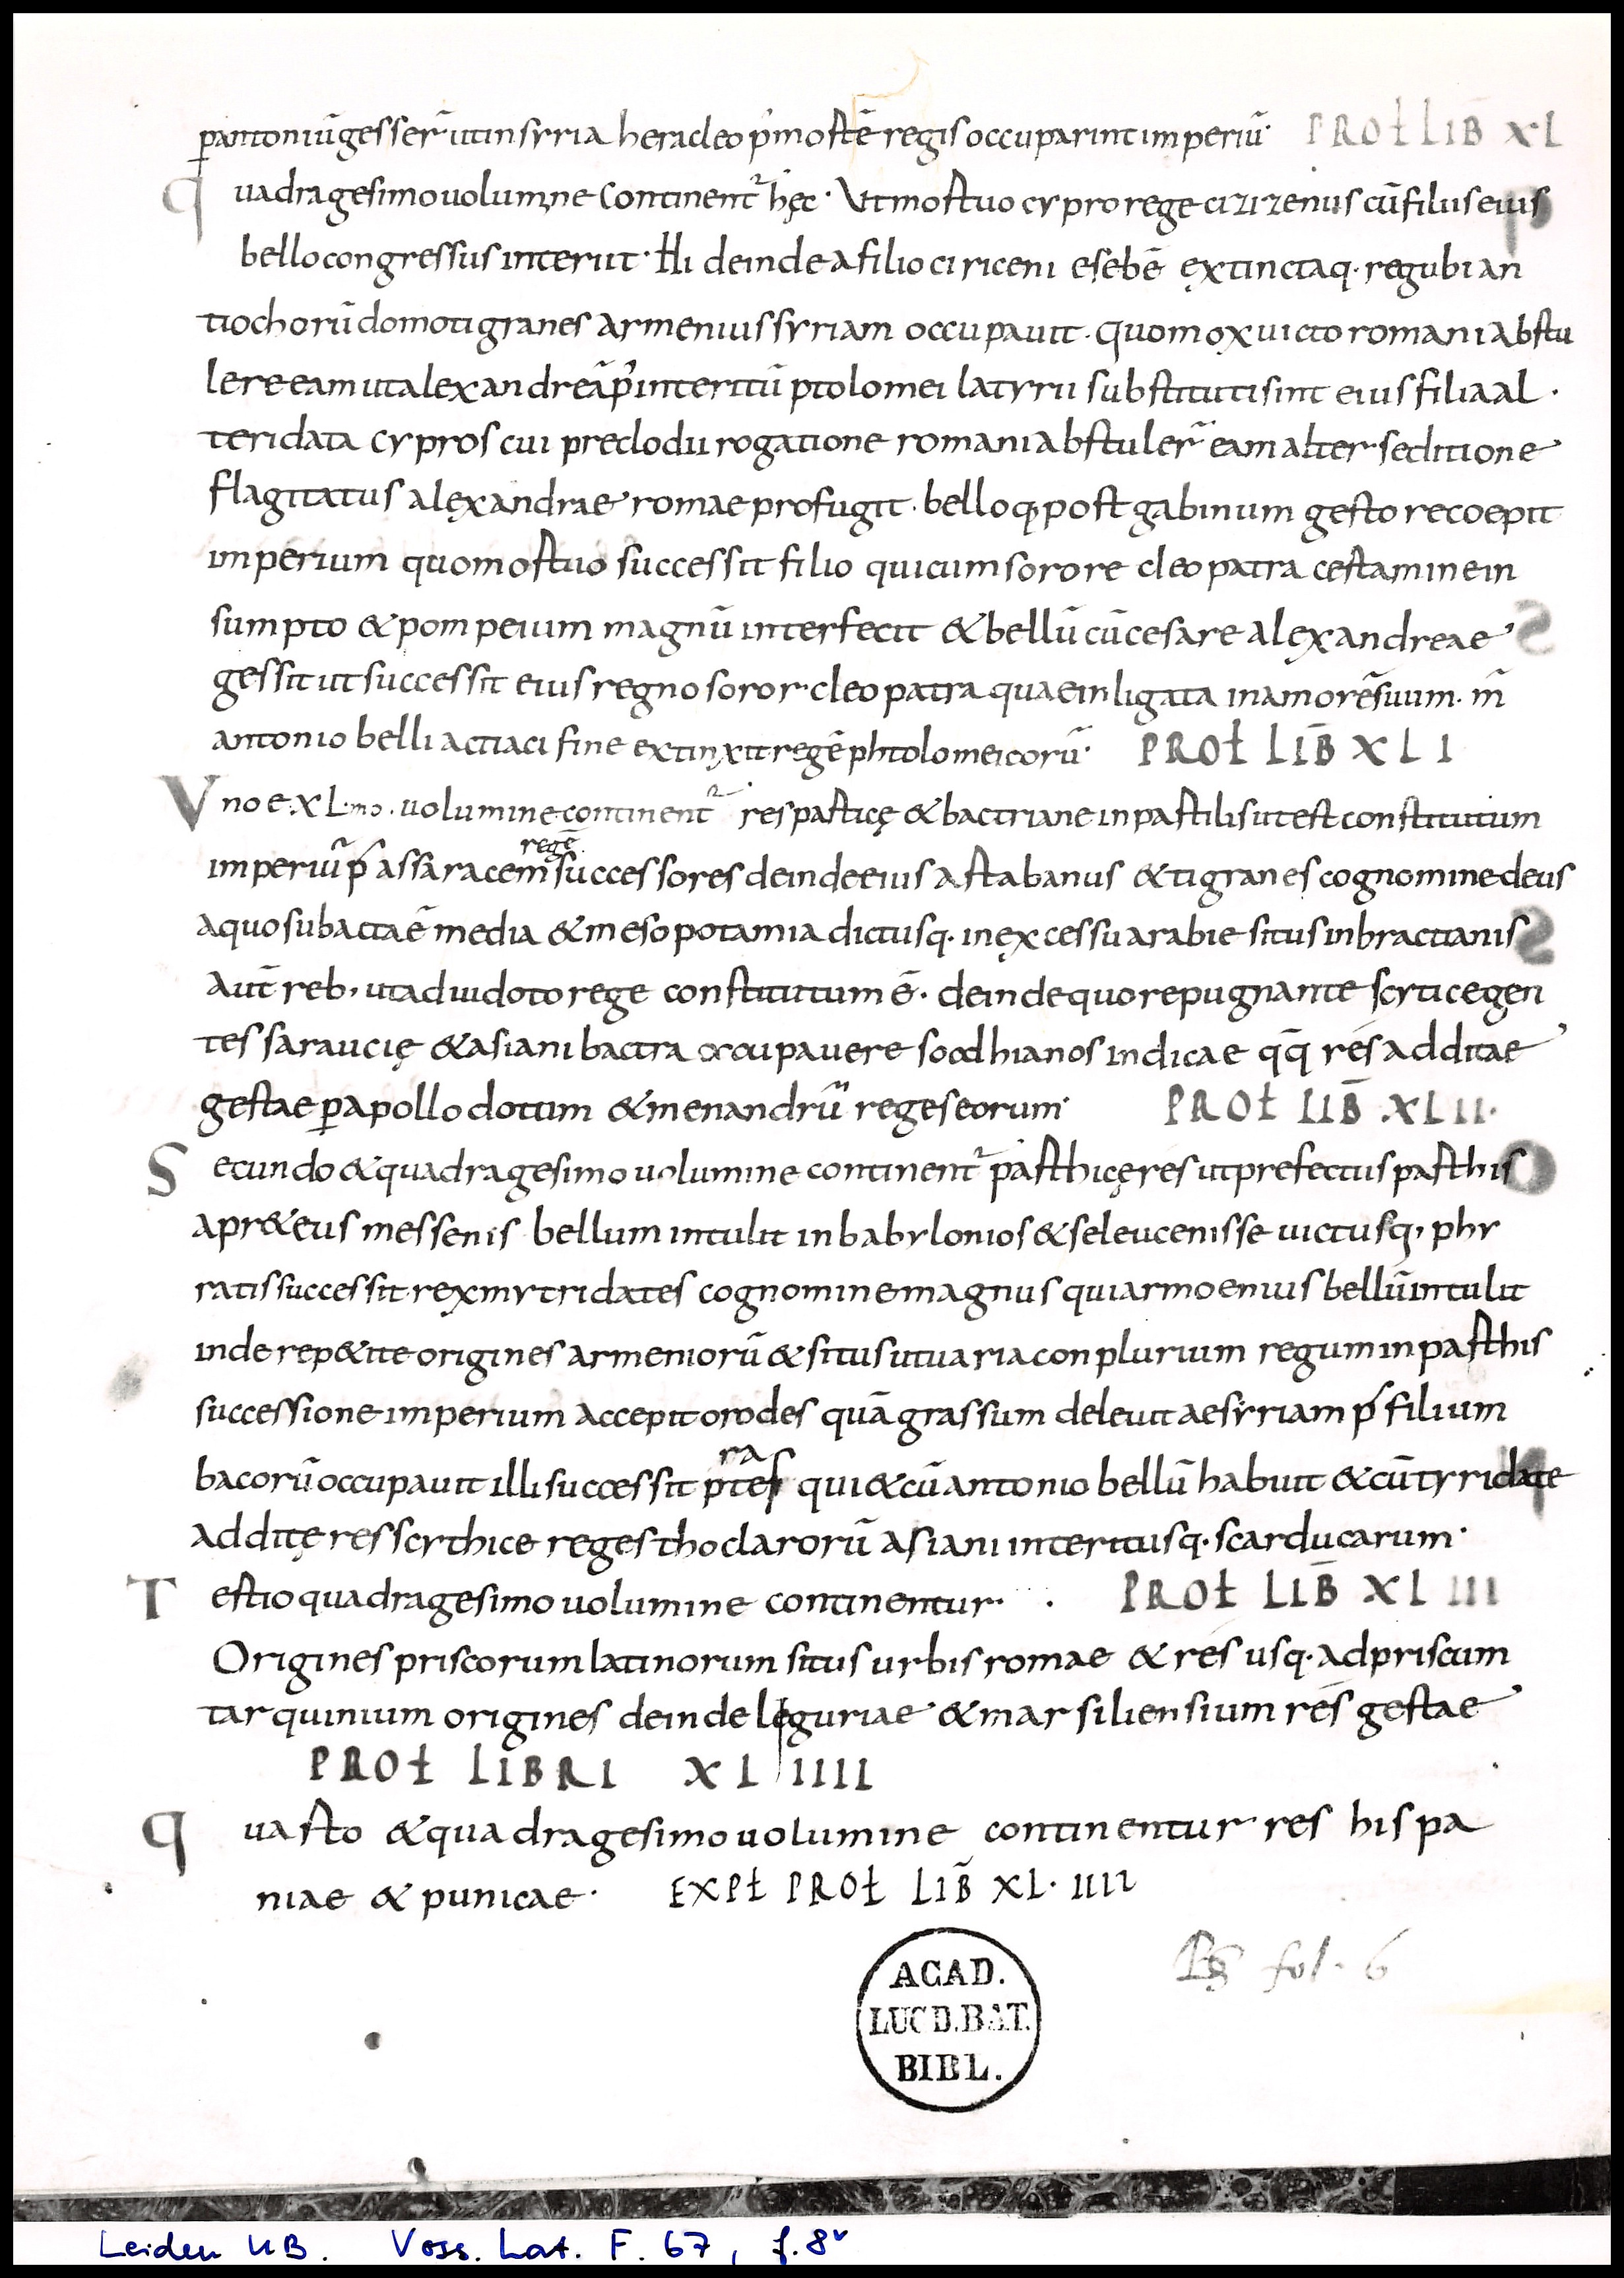 ꝑantoniū gesser̄ ut in syria heracleo p̄ mortē regis occuparint imperiū· PROŁ LIB XL
Quadragesimo volumine continent᷑ hęc· Ut mortuo cypro rege cizizenus cū filiis eius
bello congressus interiit· Hi deinde a filio ciriceni eseb ē extinctaq· regubi an
tiochorū domo tigranes armenius syriam occupavit· quo mox victo romani abstu
lere eam ut alexandreā p̄ interitū ptolomei latyrii substituti sint eius filia al·
teri data cypros cui preclodii rogatione romani abstuler̄ eam alter seditione
flagitatus alexandrae romae profugit· belloq· post gabinum gesto recoepit
imperium quo mortuo successit filio qui cum sorore cleopatra certamine in
sumpto & pompeium magnū interfecit & bellū cū cesare alexandreae
gessit ut successit eius regno soror cleopatra quae inligata in amorē suum· m̄
antonio belli actiaci fine extinxit regē phtolomeicorū· PROŁ LIB̄ XLI
Uno e· XL·mo· volumine continent᷑ res partice & bactriane in partilis ut est constitutum
regē
imperiū p̄ assaracem successores deinde eius artabanus & tigranes cognomine deus
a quo subacta ē media & mesopotamia dictusq· in excessu arabie situs in bractianis
aut̄ reb, ut ad viidoto rege constitutum ē· deinde quo repugnante scytice gen
tes saraucię & asiani bactra occupavere soodhianos indicae qq̄ res additae
gestae ꝑ apollodotum & menandrū reges eorum· PROŁ LIB̄ XLII·
Secundo & quadragesimo volumine continent᷑ parthicę res ut prefectus parthis
a pr&eus messenis bellum intulit in babylonios & seleucenisse victusq, phr
ratis successit rex mytridates cognomine magnus qui armoeniis bellū intulit
inde rep&ite origines armeniorū & situs ut varia conplurium regum in parthis
successione imperium accepit orodes quā grassum delevit ae syriam p̄ filium
ra
bacorū occupavit illi successit p̄tes qui & cū antonio bellū habuit & cū tyridate
additę res scythice reges thodarorū asiani interitusq· scarducarum·
Tertio quadragesimo volumine continentur· PROŁ LIB̄ XLIII
Origines priscorum latinorum situs urbis romae & res usq· ad priscum
tarquinium origines deinde leguriae & marsiliensium res gestae
PROŁ LIBRI XLIIII
Quarto & quadragesimo volumine continentur res hispa
niae & punicae· EXPŁ PROŁ LIB̄ XL·IIII
fol. 6
ACAD.
LUGD.BAT.
BIBL.
Leiden UB. Voss. Lat. F. 67, f.8v